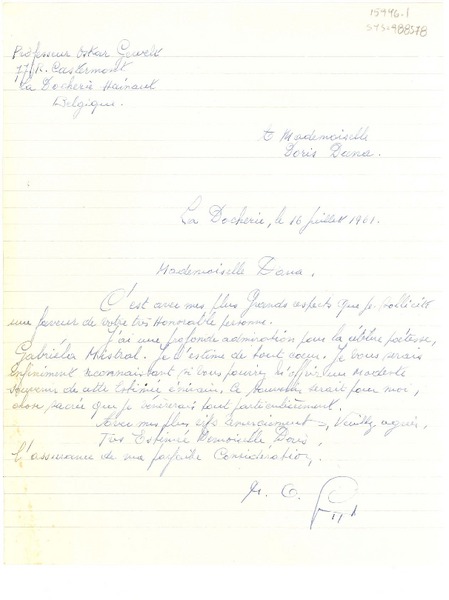 15996.1
SYS: 988578
Professeur Oskar
77, R. Castermont
La Docherie Hainaut
Belgique.
à Mademoiselle
Doris Dana.
La Docherie, le 16 juillet 1961.
Mademoiselle Dana.
C'est avec mes plus Grands respects que je sollicite
une faveur de votre très Honorable personne.
J'ai une profonde admiration pour la célèbre poétesse,
Gabriéla Mistral. Je l'estime de tout coeur. Je vous serais
Infiniment reconnaissant si vous pourriez m'offrir un modeste
souvenir de cette Estimée écrivain. Ce souvenir serait pour moi,
chose sacrée que je vénèrerais tout particulièrement.
Avec mes plus vifs remerciements, Veuillez agréer,
Très Estimée Demoiselle Doris,
l'assurance de ma parfaite Considération.